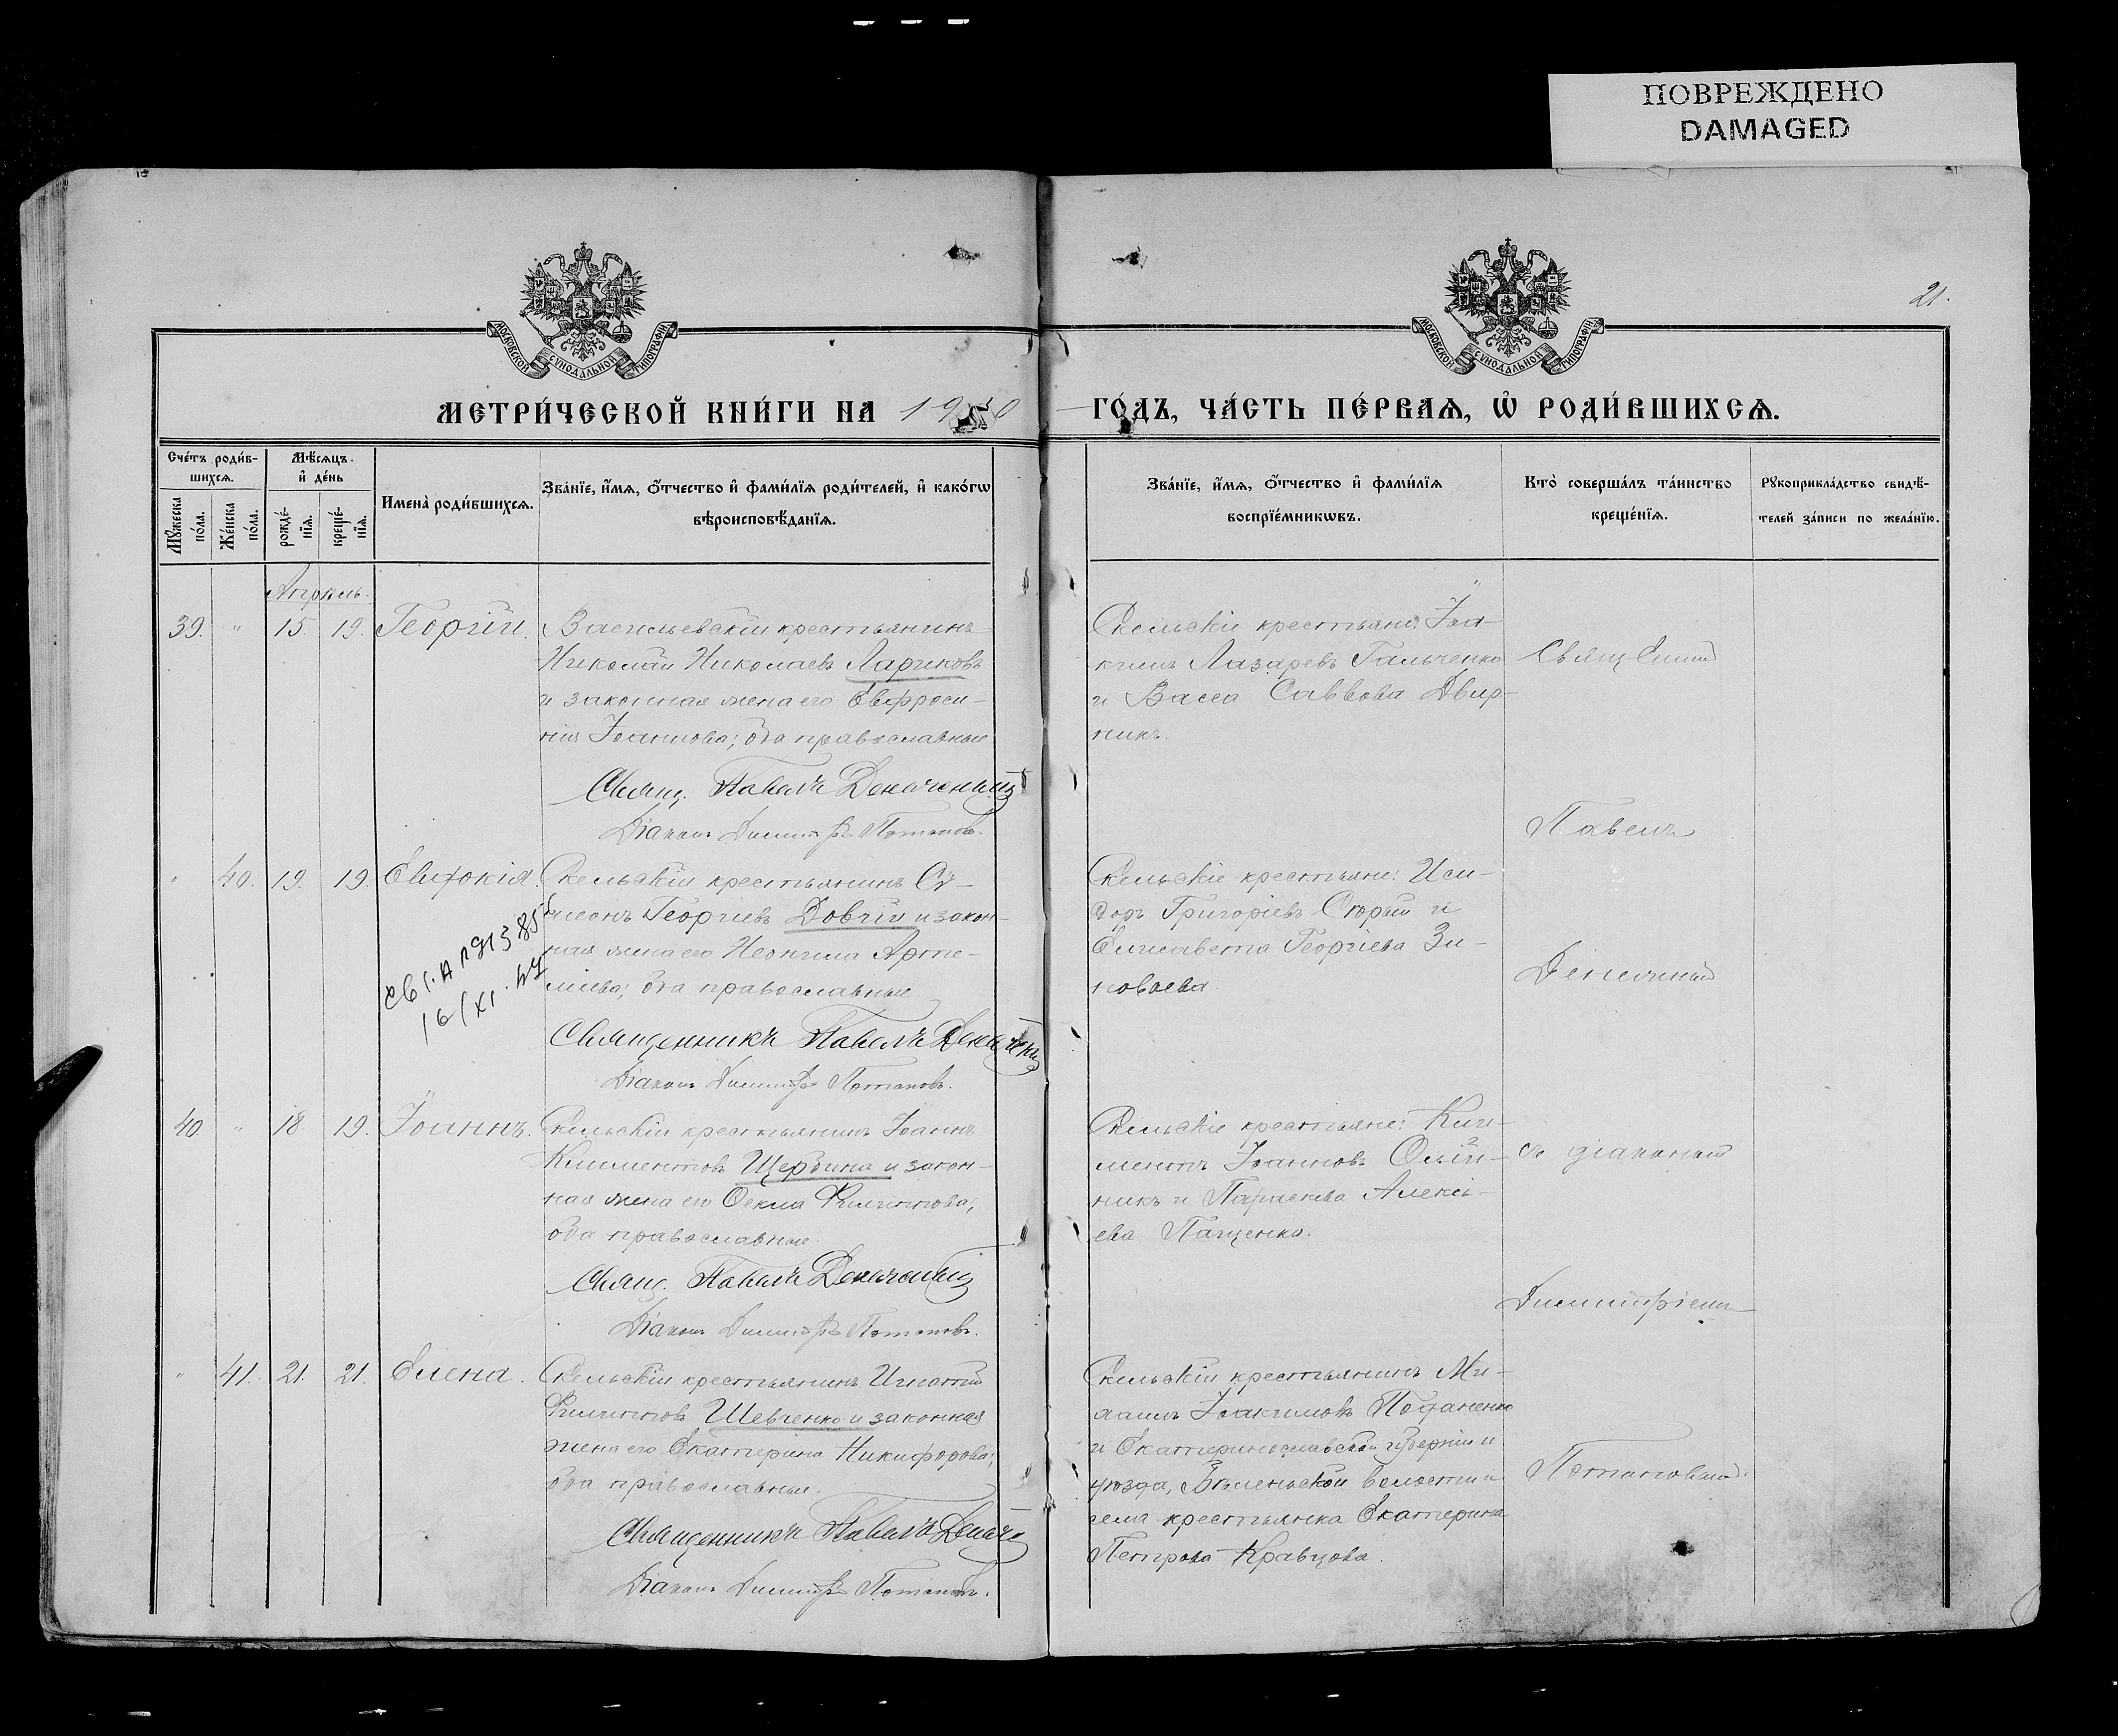 ПОВРЕЖДЕНО
DAMAGED
МОСКОВСКОЙ СѴНОДАЛЬНОЙ ТИПОГРАФІИ
МОСКОВСКОЙ СѴНОДАЛЬНОЙ ТИПОГРАФІИ
21.
МЕТРИ́ЧЕСКОЙ КНИ́ГИ НА 19 0 ГО́ДЪ, ЧА́СТЬ ПЕ́РВАѦ, Ѽ РОДИ́ВШИХСѦ.
Сче́тъ роди́в-
шихсѧ.
Мѣ́сѧцъ
и҆ де́нь
Мꙋ́жеска
по́ла.
Же́нска
по́ла.
рожде́-
нїѧ.
креще́-
нїѧ.
Имена̀ роди́вшихсѧ.
Зва́нїе, и҆́мѧ, ѻ҆́тчество и҆ фами́лїѧ роди́телей, и҆ како́гѡ
вѣроисповѣ́данїѧ.
Зва́нїе, и҆́мѧ, ѻ҆́тчество и҆ фами́лїѧ
воспрїе́мникѡвъ.
Кто̀ соверша́лъ та́инство
креще́нїѧ.
Рꙋкоприкла́дство свидѣ́-
телей за́писи по жела́нїю.
Апрѣль.
39. " 15. 19. Георгій.
Васильевскій крестьянинъ
Николай Николаевъ Лариковъ
и законная жена его Евфроси-
нія Іоаннова; оба православные
Свящ. Павелъ
Діаконъ Димитрій Потаповъ.
Скельскіе крестьяне: Іоа-
кимъ Лазаревъ Гальченко
и Васса Саввова Двор-
никъ.
" 40. 19. 19. Евдокія.
Скельскій крестьянинъ Сѵ-
меонъ Георгіевъ Довгій и закон-
ная жена его Неонила Арте-
міева; оба православные
16/XI.
Священникъ Павелъ
Діаконъ Димитрій Потаповъ.
Скельскіе крестьяне: Иси-
доръ Григоріевъ Скорый и
Елисавета Георгіева Зи-
новьева.
40. " 18 19. Іоаннъ.
Скельскій крестьянинъ Іоаннъ
Климентовъ Щербина и закон-
ная жена его Ѳекла Филиппова,
оба православные.
Свящ. Павелъ
Діаконъ Димитрій Потаповъ.
Скельскіе крестьяне: Кли-
ментъ Іоанновъ Олій-
никъ и Параскева Алексі-
ева Пащенко.
" 41. 21. 21. Елена.
Скельскій крестьянинъ Игнатій
Филипповъ Шевченко и законная
жена его Екатерина Никифорова;
оба православные.
Священникъ Павелъ
Діаконъ Димитрій Потаповъ.
Скельскій крестьянинъ Ми-
хаилъ Іоакимовъ
и Екатеринославской губерніи и
уѣзда, Бѣленьской волости и
села крестьянка Екатерина
Петрова Кравцова.
Павелъ
съ діакономъ
Димитріемъ
Потаповымъ.